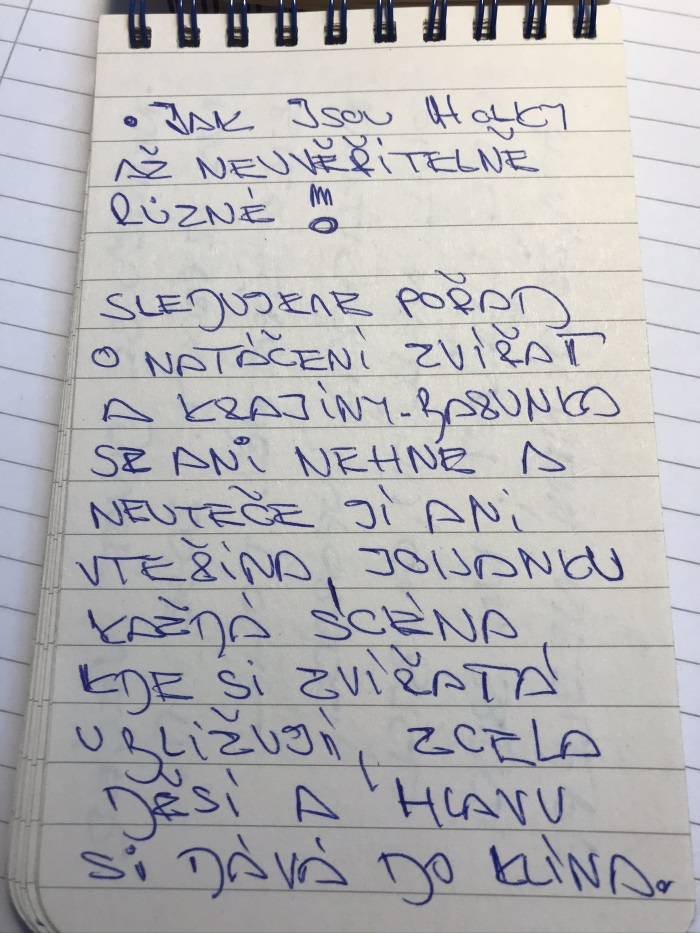 • JAK JSOU HOLKY
AŽ NEUVĚŘITELNĚ
RŮZNÉ !!!
SLEDUJEME POŘAD
O NATÁČENÍ ZVÍŘAT
A KRAJINY - BARUNKA
SE ANI NEHNE A
NEUTEČE JÍ ANI
VTEŘINA, JOHANKU
KAŽDÁ SCÉNA,
KDE SI ZVÍŘATA
UBLIŽUJÍ, ZCELA
DĚSÍ A HLAVU
SI DÁVÁ DO KLÍNA.